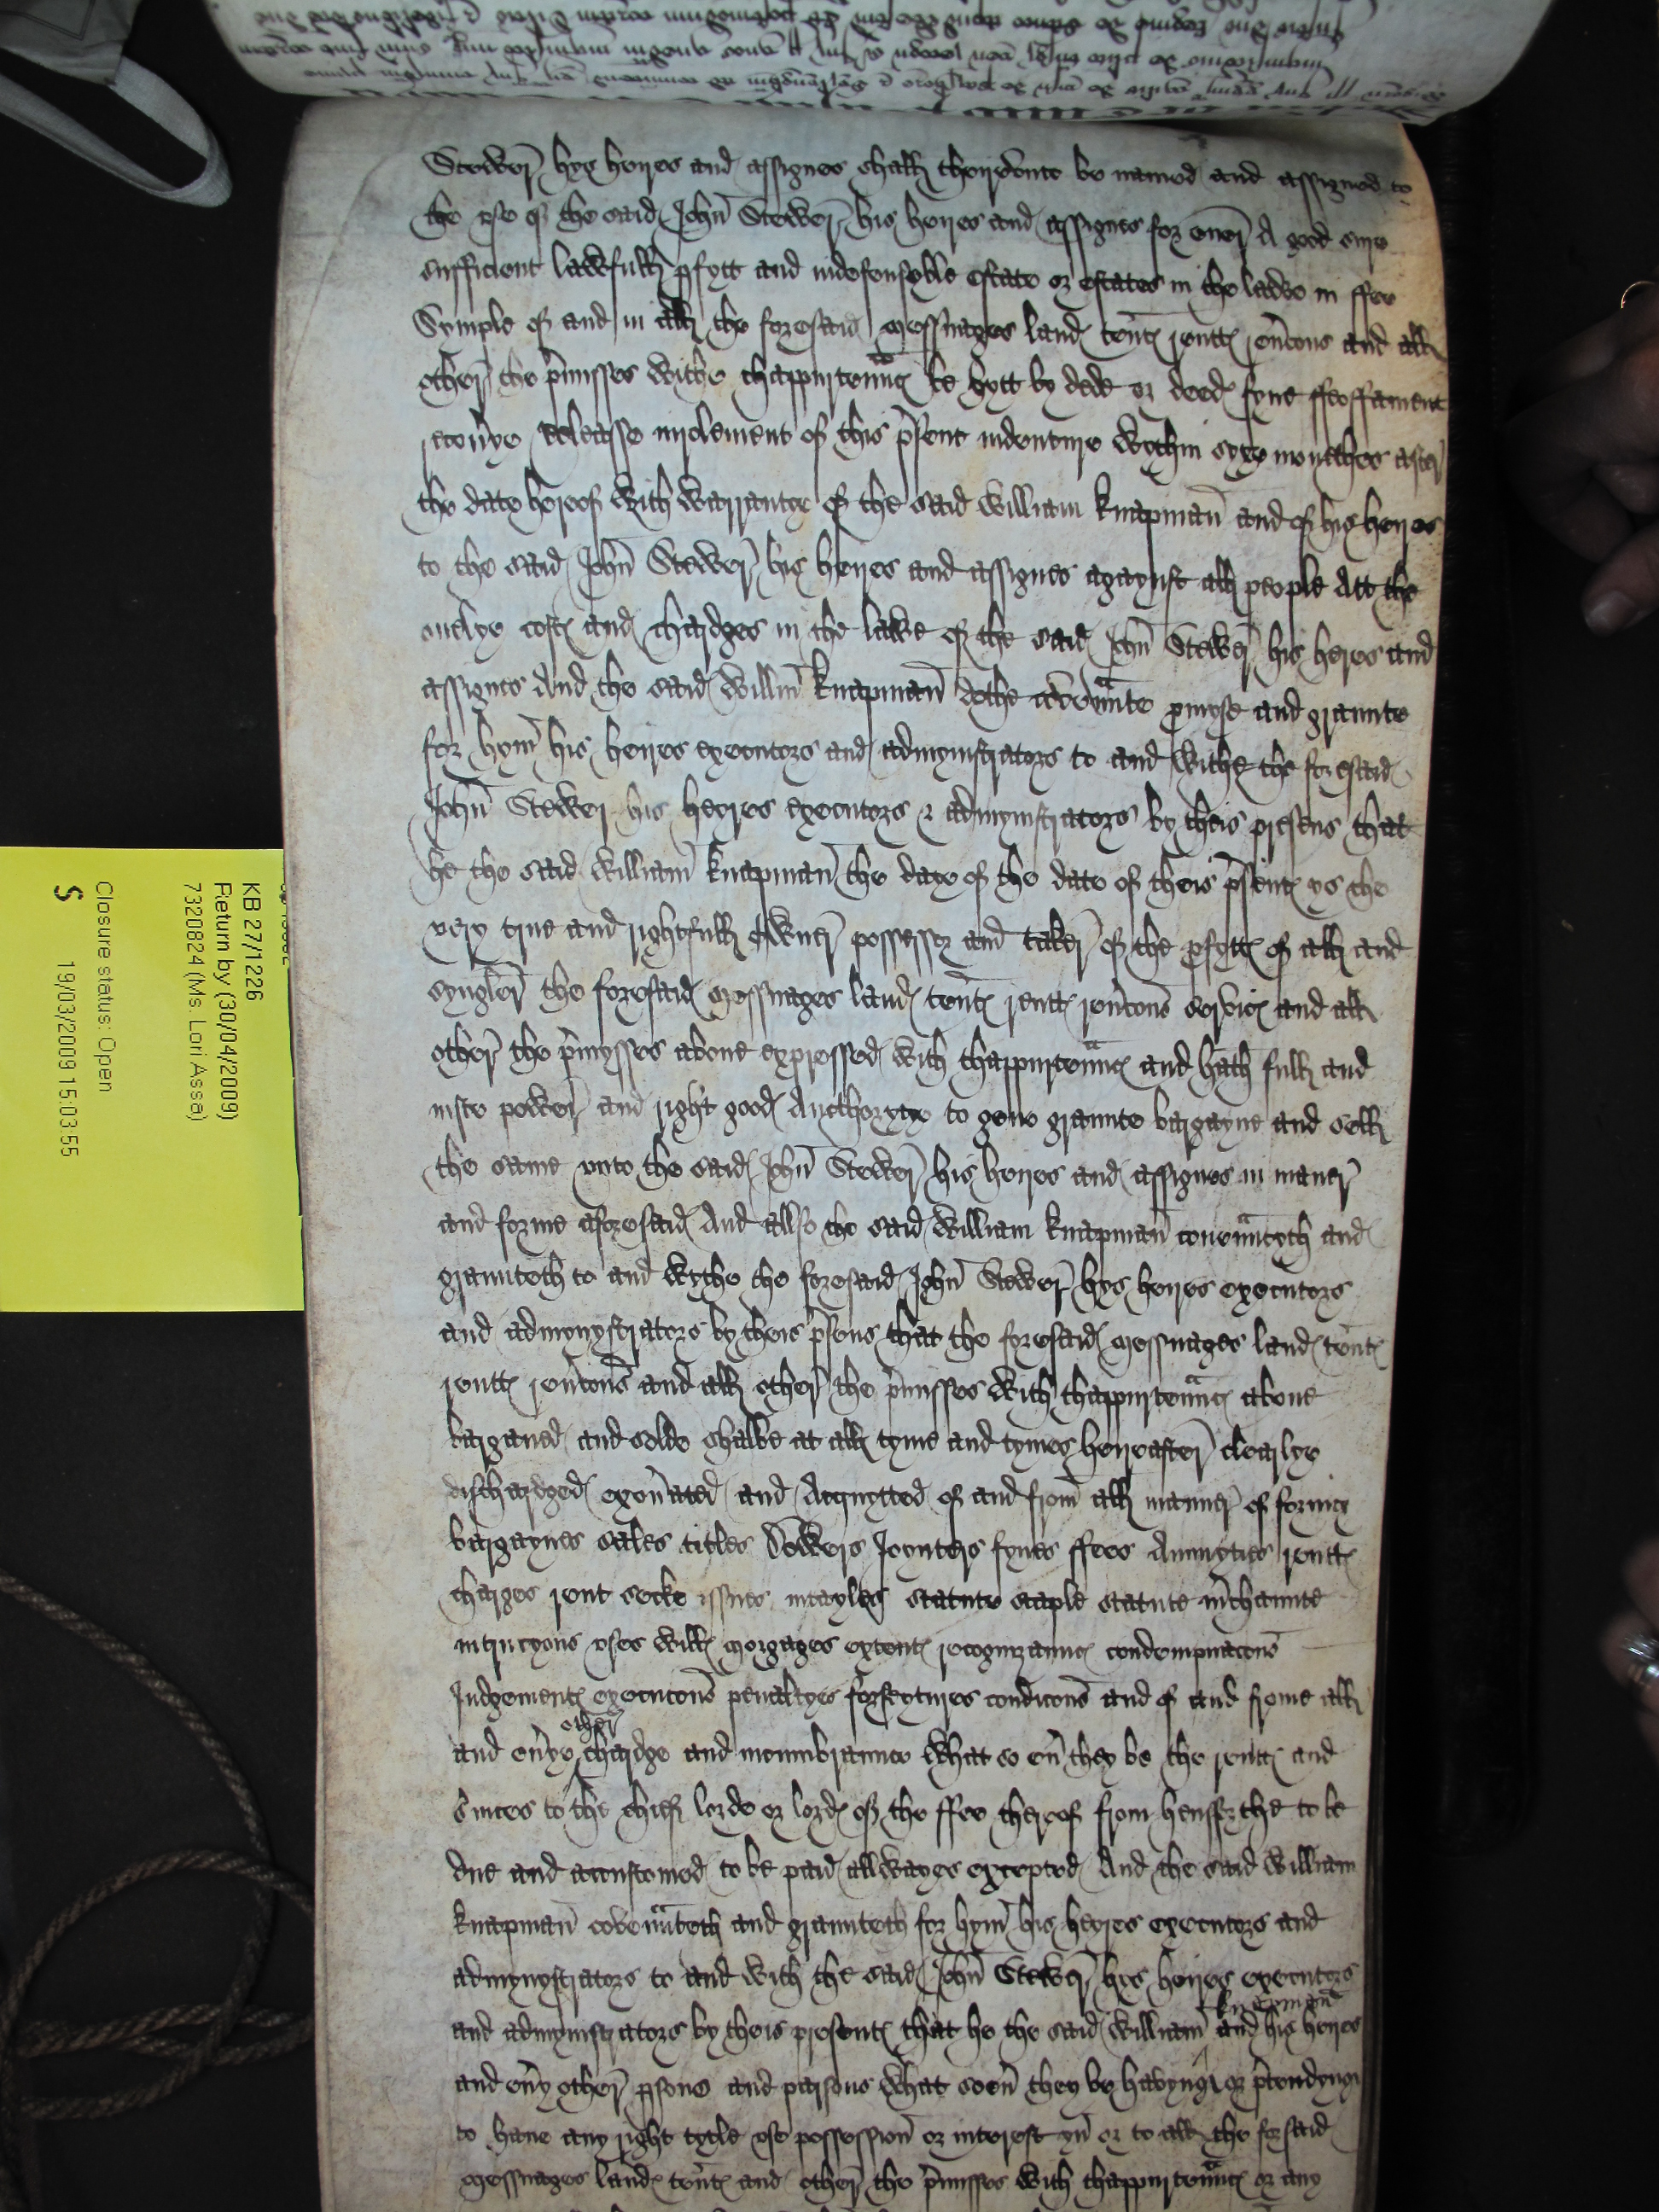 Stewer hys heires and assignes shall therevnto be named and assigned to
the vse of the said John Stewer his heires and assignes for euer A good sure
sufficient lawfull pfytt and indefensyble estate or estates in the lawe in ffee
Symple of and in all the foresaid messuages land tent rentt reucons and all
other the pmisses withe thappurtennc be hytt by dede or deed fyne ffeoffament
recouye releasse inrolement of this psent indenture wythin syxe monethes after
the date hereof with warrantye of the said William Knapman and of his heires
to the said John Stewer his heires and assignes agaynst all people Att the
onelye cost and chardges in the lawe of the said John Stewer his heres and
assignes And the said Willm Knapman dothe covennte pmyse and graunte
for hym his heires executors and admynystrators to and withe the foresaid
John Stewer his heeres executors & admynystrators by theis presens that
he the said William Knapman the daye of the date of theis psent ys the
very true and rightfull owner possessor and taker of the pfytt of all and
syngler the foresaid messuages land tent rentt reucons servic and all
other the pmysses aboue expressed with thappurtennc and hath full and
iuste power and right good Aucthorytye to geue graunte bargayne and sell
the same vnto the said John Stewer his heires and assignes in maner
and forme aforesaid And allso the said William Knapman couenntyth and
graunteth to and wythe the foresaid John Stewer hys heires executors
and admynystrators by theis psens that the foresaid messuages land tent
rentt reucons and all other the pmisses with thappurtennc aboue
barganed and solde shalbe at all tyme and tymes hereafter clearlye
dischardged exonated and Acquytted of and from all manner of former
bargaynes sales titles Dowers Joynters fynes ffees Annuyties rentt
charges rent secke issues intayles statute staple statute mchaunte
intrucyons vses will morgages extent recognizaunc condempnacons
Judgement execucons penaltyes forfeytures condicons and of and frome all
and euye other chardge and incumbraunce what so eu they be the rentt and
suices to the chieff lorde or lord of the ffee thereof from hensforthe to be
due and accustomed to be paid allwayes excepted And the said William
Knapman covennteth and graunteth for hym his heyres executors and
admynystrators to and with the said John Stewer his heires executors
and admynystrators by theis present that he the said William Knapman and his heires
and euy other psons and parsons what soeu they be havyng or ptendyng
to haue any right tytle vse possession or interest yn or to all the forsaid
messuages land tent and other the pmisses with thappurtennc or any
KB 27/1226
Return by (30/04/2009)
7320824 (Ms. Lori Asse)
Closure status: Open
S 19/03/2009 15:03:55